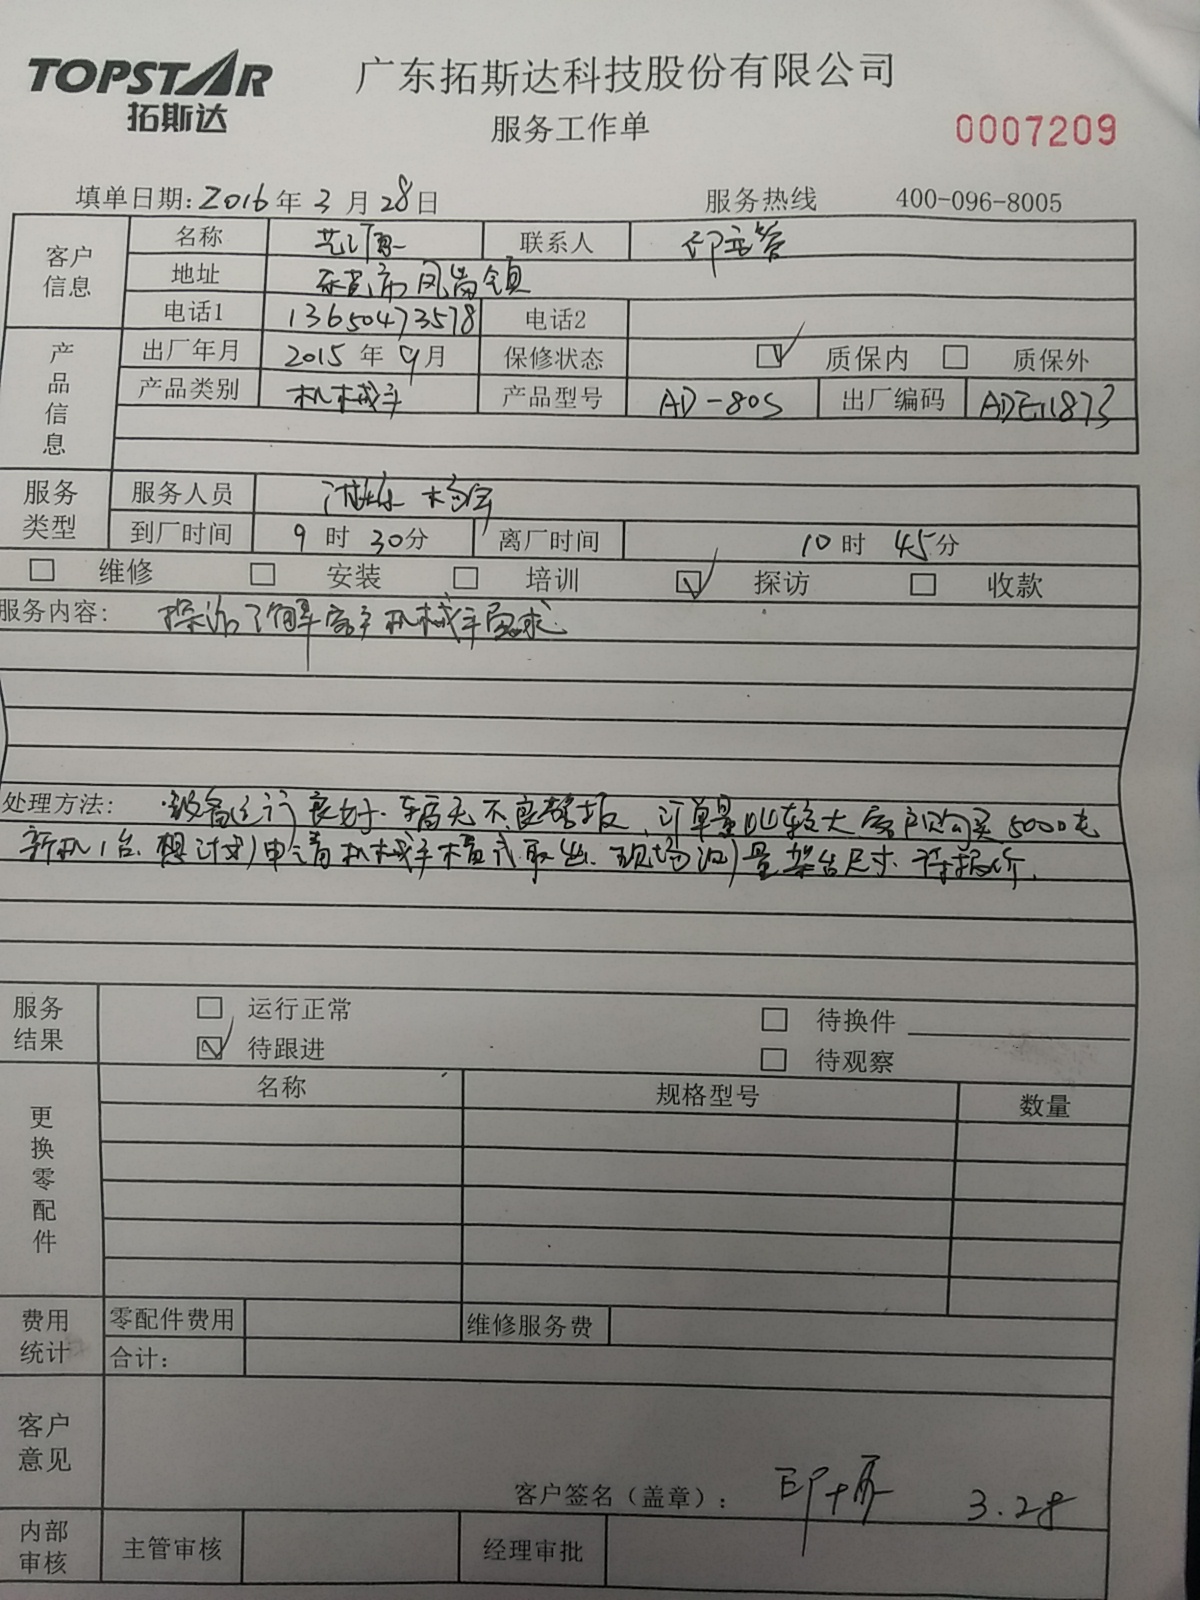 TOPSTAR
拓斯达
广东拓斯达科技股份有限公司
服务工作单
0007209
填单日期: 2016年 3月 28日 服务热线 400-096-8005
客户信息
名称 联系人 主管
地址 东莞市凤岗镇
电话1 13650473578 电话2
产品信息
出厂年月 2015年 9月 保修状态 质保内 质保外
产品类别 机械手 产品型号 AD-80S 出厂编码 ADE11873
服务类型
服务人员
到厂时间 9时 30分 离厂时间 10时 45分
维修 安装 培训 探访 收款
服务内容: 探访了解客户机械手需求
处理方法: 设备运行良好. 无不良警报, 订单量比较大客户购买5000吨
新机1台. 想计划申请机械手模式取出. 现场测量架台尺寸. 待报价.
服务结果
运行正常 待换件
待跟进 待观察
更换零配件
名称 规格型号 数量
费用统计
零配件费用 维修服务费
合计:
客户意见
客户签名(盖章): 3.28
内部审核
主管审核 经理审批